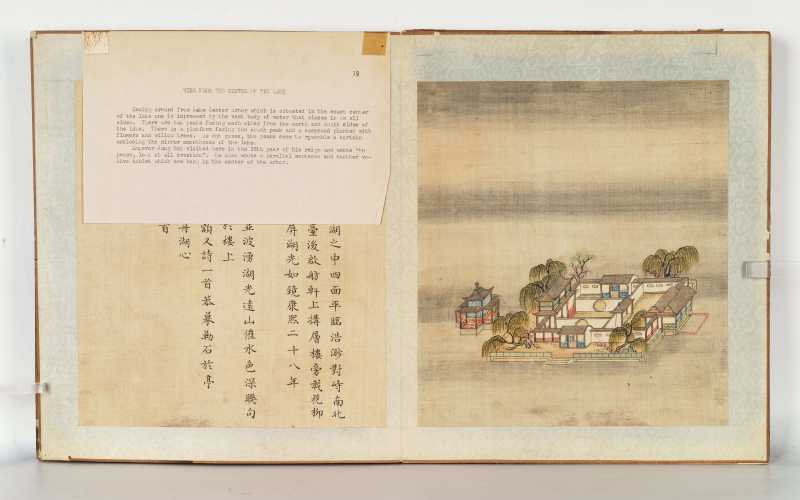 VIEW FROM THE CENTER OF THE LAKE
Gazing around from Lake Center Arbor which is situated in the exact center
of the lake one is impressed by the vast body of water that closes in on all
sides. There are two peaks facing each other from the north and south sides of
the lake. There is a platform facing the south peak and a compound planted with
flowers and willow trees. As one gazes, the peaks seem to resemble a curtain
enclosing the mirror smoothness of the lake.
Emperor Kang Hsi visited here in the 28th year of his reign and wrote "In
peace, look at all creation". He also wrote a parallel sentence and another vo-
tive tablet which now hang in the center of the arbor.
湖之中四面平臨浩渺對峙南北
臺後啟舫軒上搆層樓旁栽花柳
屏湖光如鏡康熙二十八年
波湧湖光遠山催水色深聯句
於樓上
額又詩一首恭摹勒石於亭
湖心
首